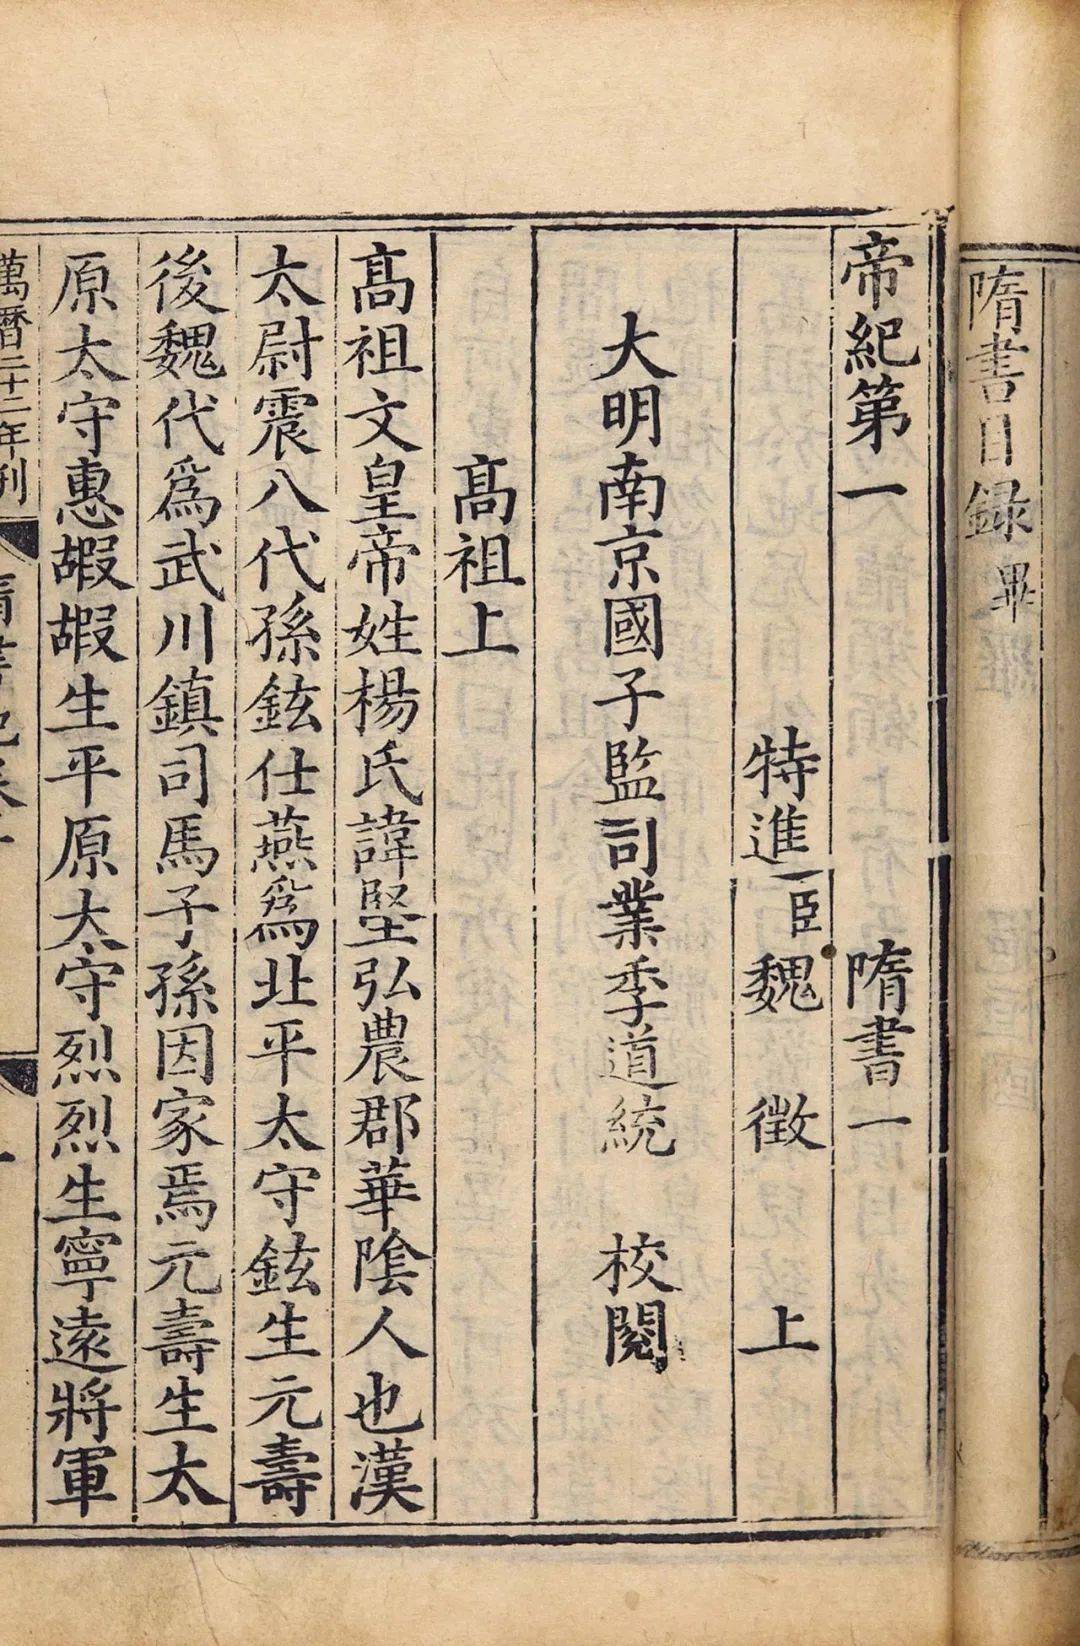 隋書目錄畢
帝紀第一　隋書一
特進臣魏徵上
大明南京國子監司業季道統　校閱
髙祖上
髙祖文皇帝姓楊氏諱堅弘農郡華陰人也漢
太尉震八代孫鉉仕燕爲北平太守鉉生元壽
後魏代爲武川鎮司馬子孫因家焉元壽生太
原太守惠嘏嘏生平原太守烈烈生寧遠將軍
萬曆二十二年刊